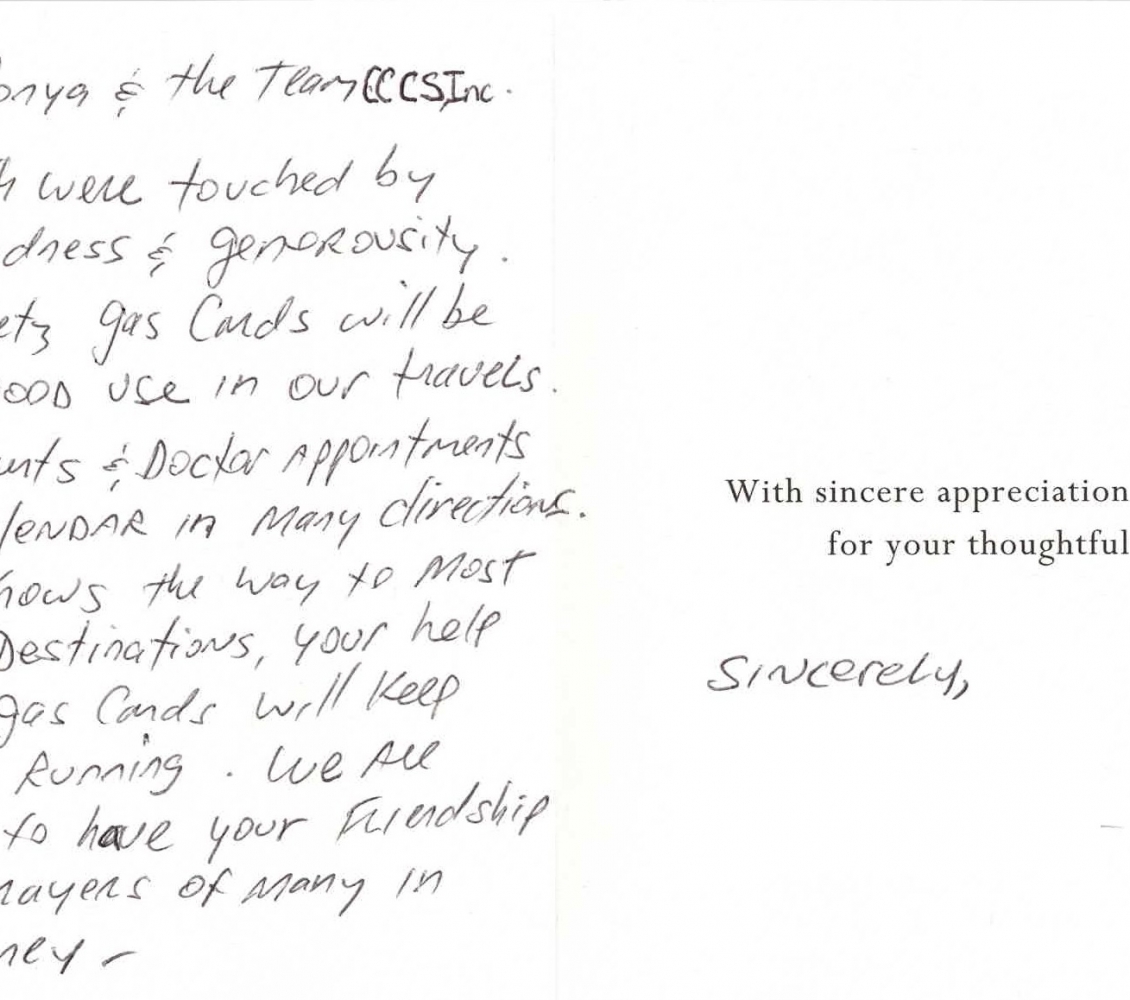 onya & the Team CCCS,Inc.
h were touched by
dness & generousity.
etz gas Cards will be
OOD use in our travels.
ents & Doctor Appointments
lendar in Many directions.
nows the way to Most
Destinations, your help
gas Cards will Keep
Running. We are
to have your Friendship
rayers of Many in
ney -
With sincere appreciation
for your thoughtful
Sincerely,